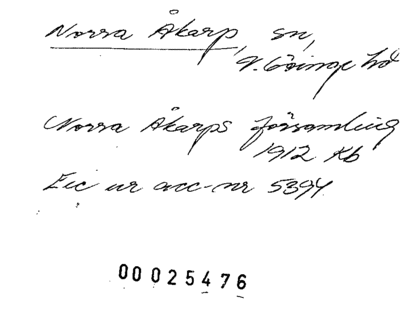 Norra Åkarp, sn,
V. Göinge hd
Norra Åkarps församling
1912 Kb
Exc ur acc-nr 5394
00025476